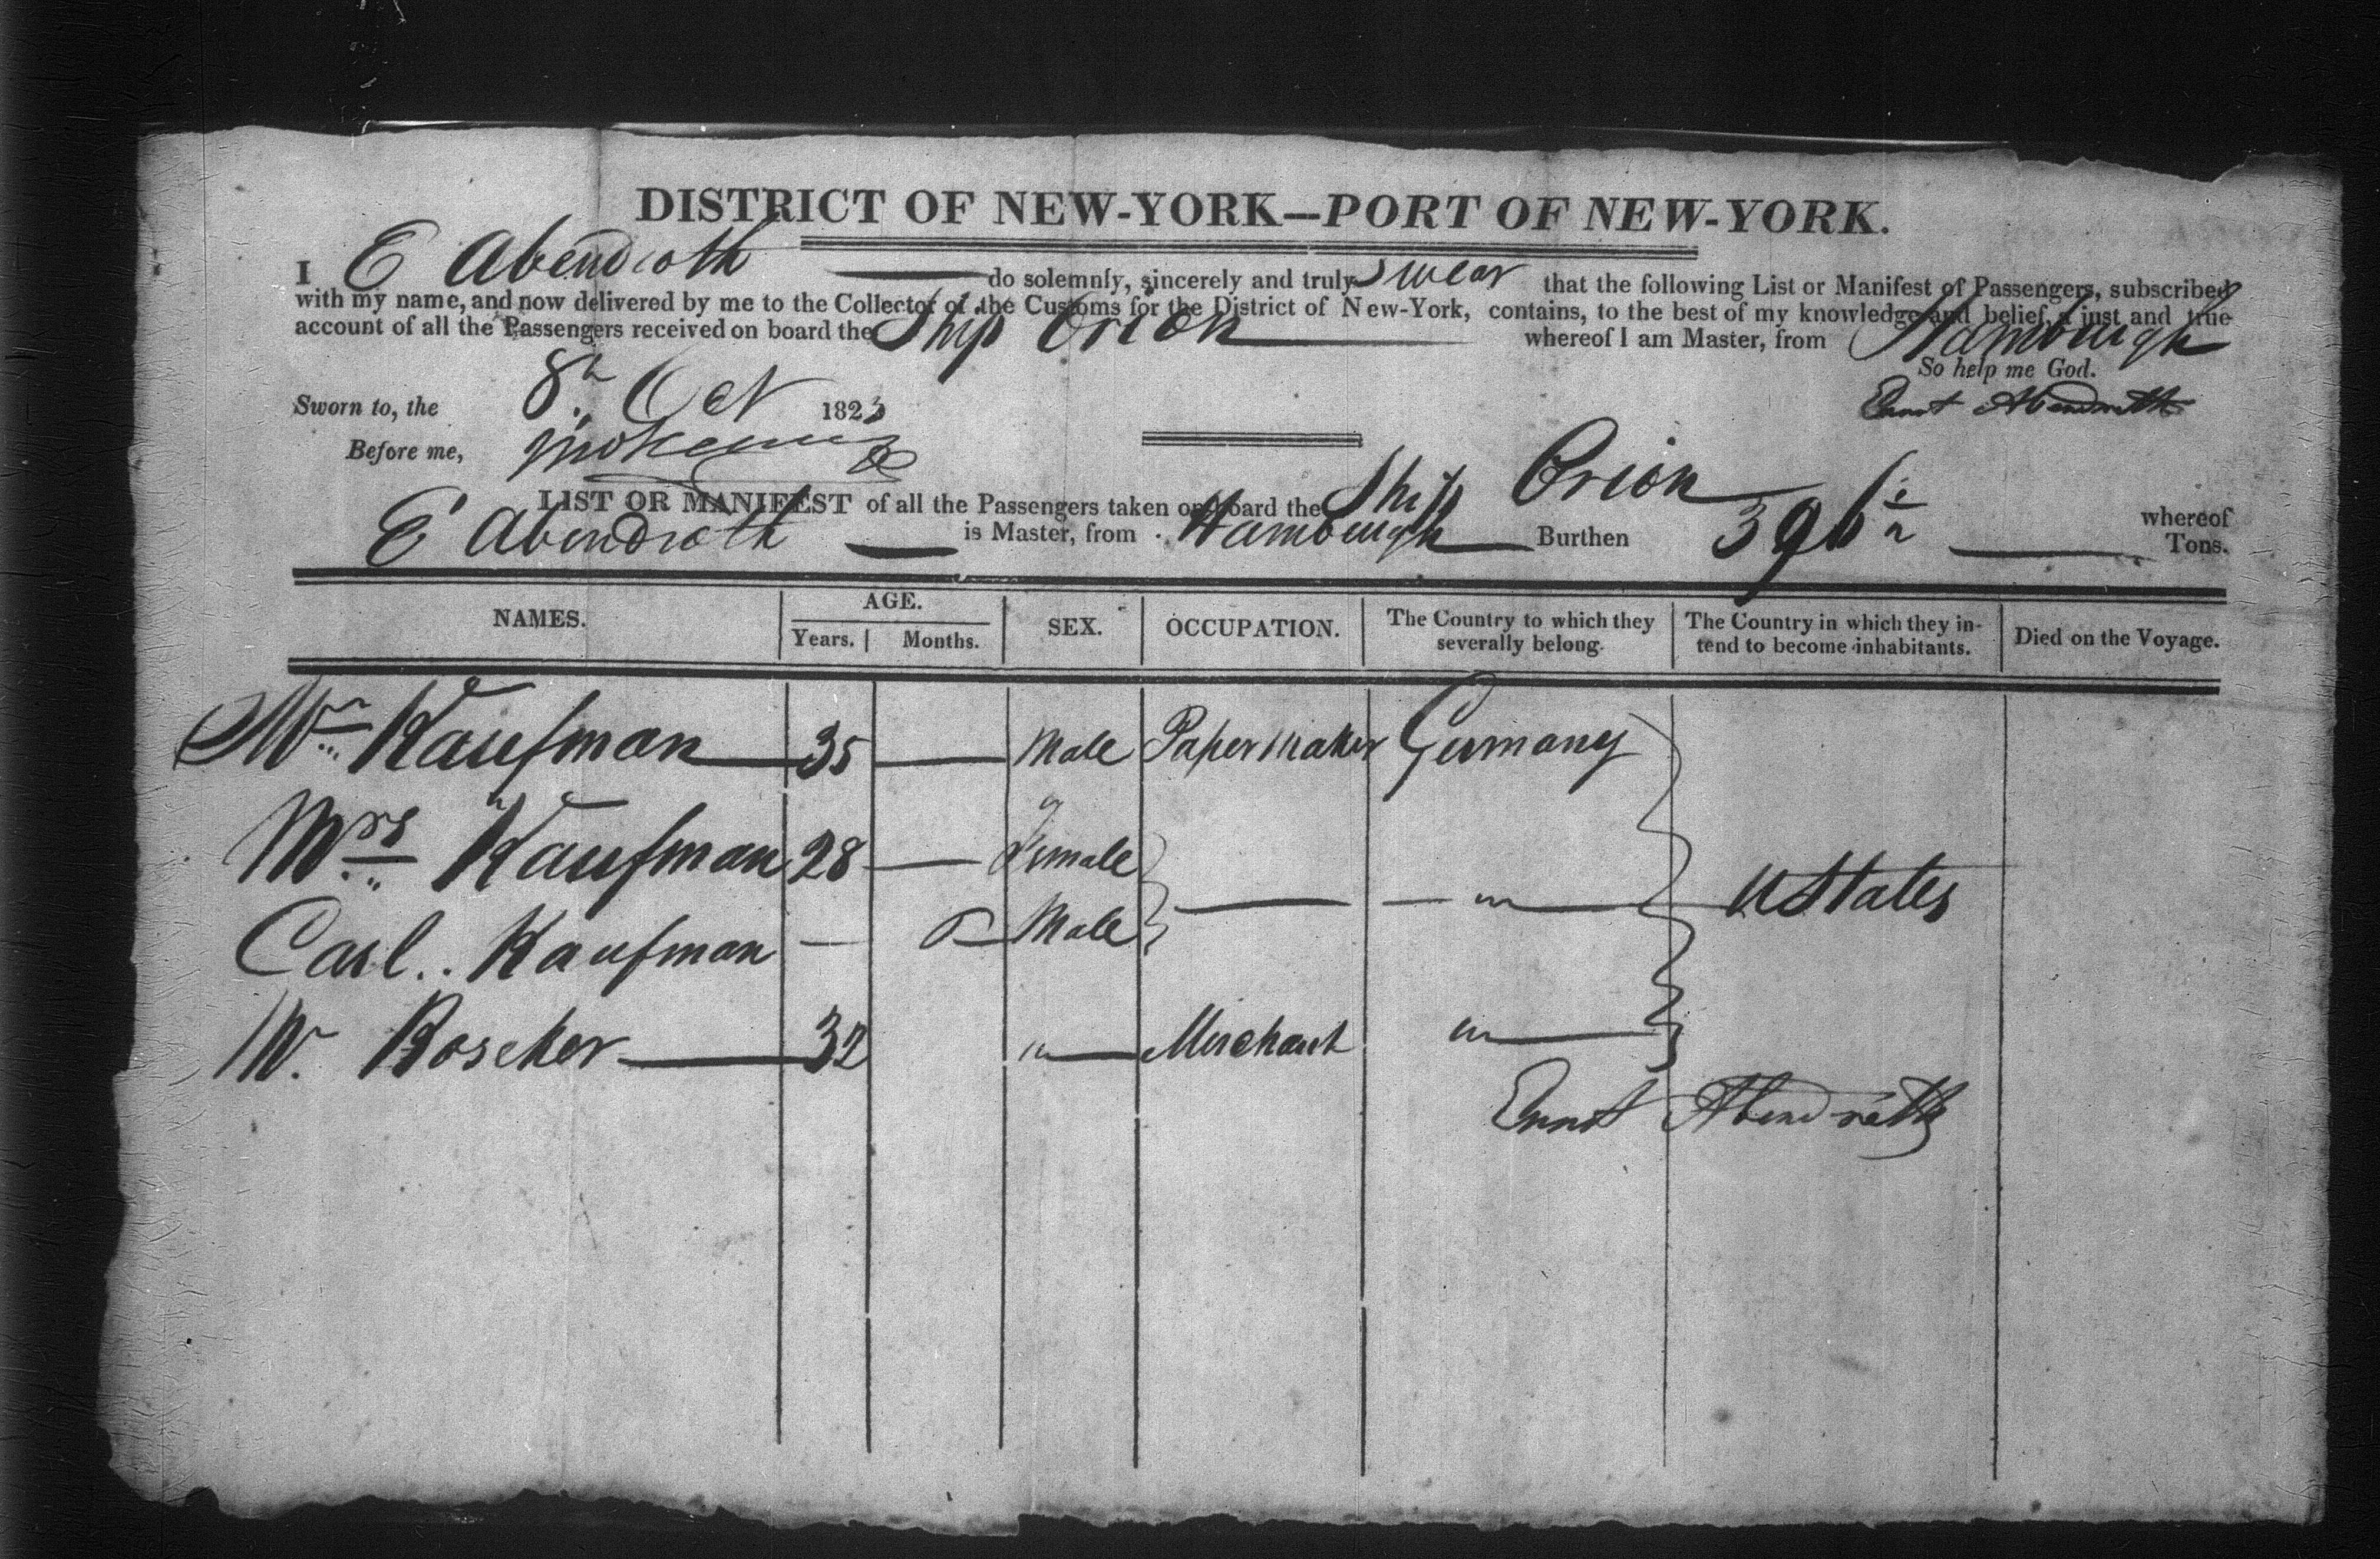 DISTRICT OF NEW-YORK—PORT OF NEW-YORK.
I E Abendroth do solemnly, sincerely and truly Swear that the following List or Manifest of Passengers, subscribed
with my name, and now delivered by me to the Collector of the Customs for the District of New-York, contains, to the best of my knowledge and belief, a just and true
account of all the Passengers received on board the Ship Orion whereof I am Master, from Hamburgh
So help me God.
Sworn to, the 8th Oct 1823
Ernst Abendroth
Before me,
LIST OR MANIFEST of all the Passengers taken on board the Ship Orion whereof
E Abendroth is Master, from Hamburgh Burthen Tons.
NAMES. AGE. Years. Months. SEX. OCCUPATION. The Country to which they severally belong. The Country in which they intend to become inhabitants. Died on the Voyage.
Mr Kaufman 35 — Male Papermaker Germany
Mrs Kaufman 28 — Female
Carl Kaufman — Male — " — UStates
Mr Roscher 32 " Merchant "
Ernst Abendroth